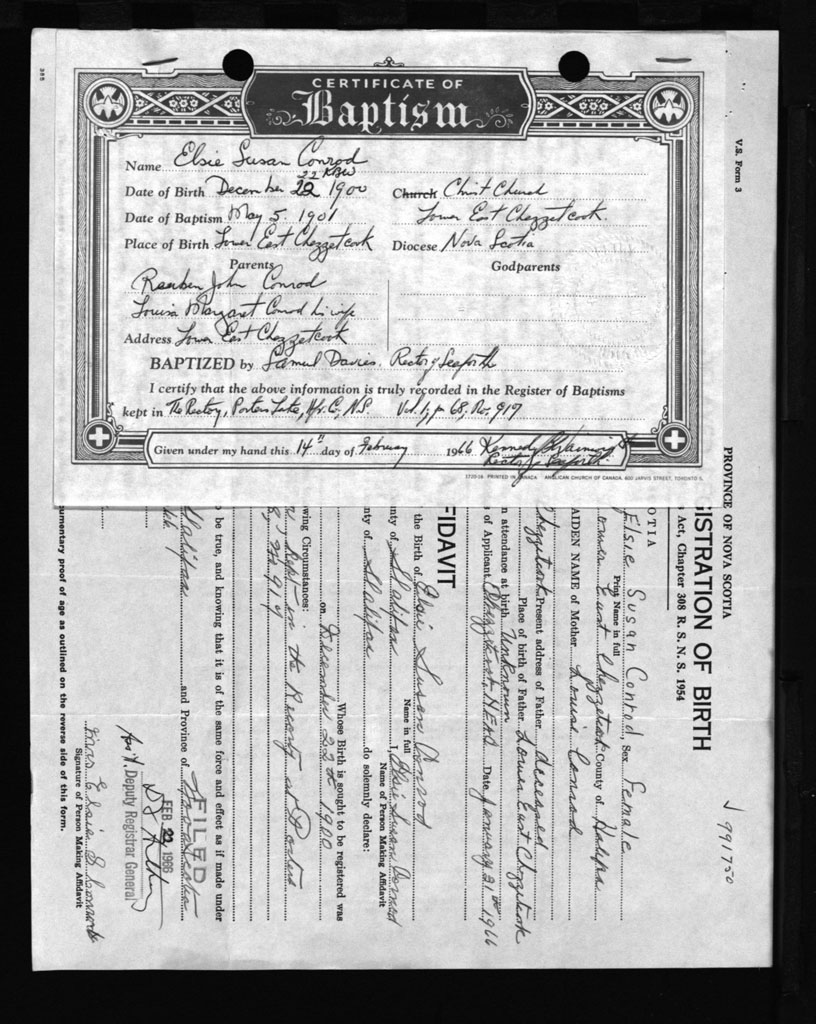 CERTIFICATE OF
Baptism
Name Elsie Susan Conrod
22 KBW
Date of Birth December 22 1900 Church Christ Church
Date of Baptism May 5. 1901 Lower East Chezzetcook.
Place of Birth Lower East Chezzetcook Diocese Nova Scotia
Parents Godparents
Reuben John Conrod
Louisa Margaret Conrod his wife
Address Lower East Chezzetcook
BAPTIZED by Samuel Davies, Rector of Seaforth
I certify that the above information is truly recorded in the Register of Baptisms
kept in The Rectory, Porters Lake, Hfx. Co., N.S. Vol. 1, p 68, No. 917
Given under my hand this 14th day of February 1966 Kennedy B.
Rector of Seaforth
1720-26 PRINTED IN CANADA ANGLICAN CHURCH OF CANADA, 600 JARVIS STREET, TORONTO 5.
V.S. Form 3
PROVINCE OF NOVA SCOTIA
ISTRATION OF BIRTH
Act, Chapter 308 R. S. N. S. 1954
991750
OTIA
Elsie Susan Conrod, Sex Female
Print Name in full
Lower East Chezzetcook County of Halifax
AIDEN NAME of Mother Louisi Conrod
Chezzetcook Present address of Father deceased
Place of birth of Father Lower East Chezzetcook
n attendance at birth Unknown
of Applicant Chezzetcook, HEAD Date January 31 1966
FIDAVIT
the Birth of Elsie Susan Conrod
Name in full
nty of Halifax I, Elsie Susan Conrod
Name of Person Making Affidavit
nty of Halifax do solemnly declare:
Whose Birth is sought to be registered was
on December 22 1900
wing Circumstances:
Kept in the Rectory at Porters
919
be true, and knowing that it is of the same force and effect as if made under
Halifax and Province of Nova Scotia
FILED
FEB 22 1966
Deputy Registrar General
Mrs Elsie S Conrod
Signature of Person Making Affidavit
umentary proof of age as outlined on the reverse side of this form.